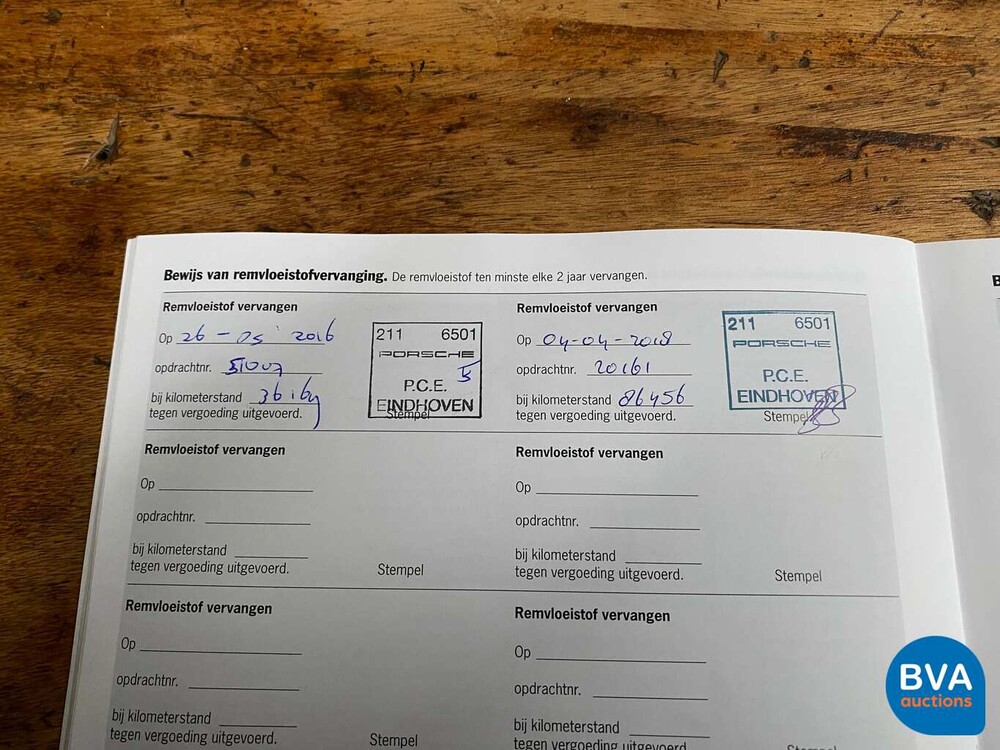 Bewijs van remvloeistofvervanging. De remvloeistof ten minste elke 2 jaar vervangen.
Remvloeistof vervangen
Op 26-05-2016
opdrachtnr.
bij kilometerstand
tegen vergoeding uitgevoerd.
211 6501
PORSCHE
P.C.E.
EINDHOVEN
Stempel
Remvloeistof vervangen
Op 04-04-2018
opdrachtnr. 20161
bij kilometerstand 86456
tegen vergoeding uitgevoerd.
211 6501
PORSCHE
P.C.E.
EINDHOVEN
Stempel
Remvloeistof vervangen
Op
opdrachtnr.
bij kilometerstand
tegen vergoeding uitgevoerd.
Stempel
Remvloeistof vervangen
Op
opdrachtnr.
bij kilometerstand
tegen vergoeding uitgevoerd.
Stempel
Remvloeistof vervangen
Op
opdrachtnr.
bij kilometerstand
tegen vergoeding uitgevoerd.
Stempel
Remvloeistof vervangen
Op
opdrachtnr.
bij kilometerstand
tegen vergoeding uitgevoerd.
Stempel
B
BVA
auctions